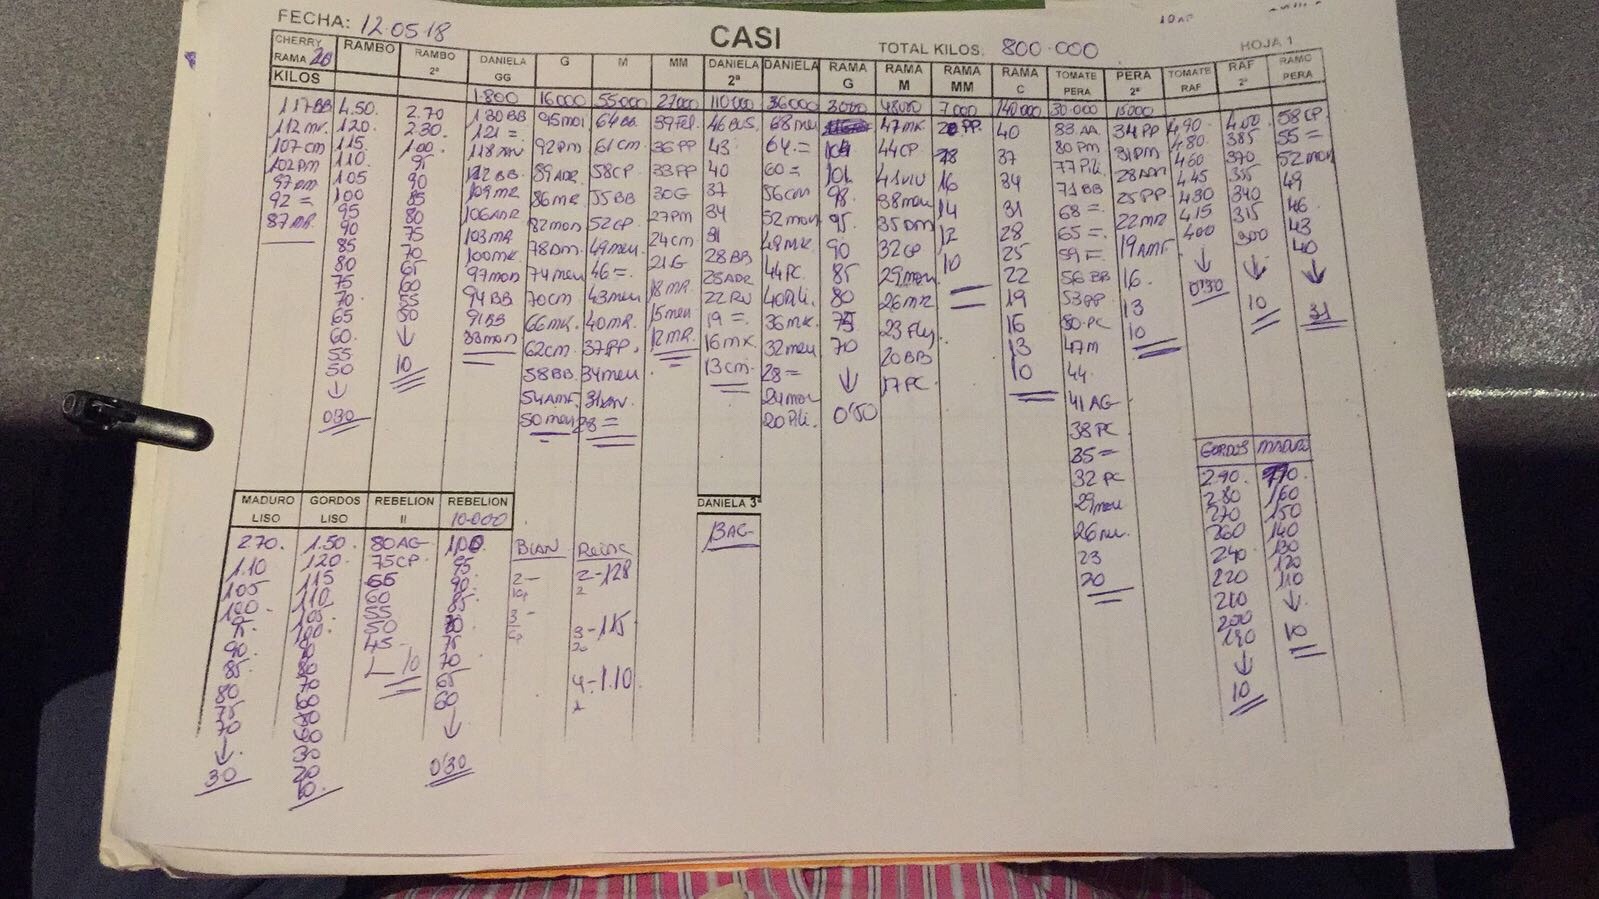 FECHA: 12.05.18
CASI
TOTAL KILOS. 800.000
HOJA 1
CHERRY RAMA RAMBO RAMBO 2ª DANIELA GG G M MM DANIELA 2ª DANIELA RAMA G RAMA M RAMA MM RAMA C TOMATE PERA PERA 2ª TOMATE RAF RAF 2ª RAMO PERA
KILOS 1.800 16000 55000 27000 110000 36000 3000 48000 7.000 140000 30.000 15000
117BB 4.50. 2.70 130BB 95mon 64BB. 39Fel. 46BUS. 68meu 47mK 20PP. 40 83 AA. 34PP 4.90. 4.00 58CP
112 mr. 120. 2.30. 121 = 92pm 61cm 36PP 43 64.= 104 44CP 18 37 80 pm 31PM 4.80 385 55 =
107cm 115 100 118 89ADR 58CP 33PP 40 60 = 101 41VIU 16 34 77Pili 28ADM 4.60 370 52mon
102pm 110 95 112BB 86MR. 55BB 30G 37 56cm 98 38meu 14 31 71BB 25PP 4.45 355 49
97pm 105 90 109MR 82mon 52CP 27PM 34 52mon 95. 35DM 12 28 68 = 22MR 430 340 46
92 = 100 85 106ADR 78Dm. 49meu 24cm 31 48MK 90 32CP 10 25 65 = 19AMF 415 315 43
87MR. 95 80 103MR 74meu 46=. 21G 28BB 44PC 85 29meu 22 59 F= 16 400 300 40
90 75 100MK 70cm 43meu 18MR 25ADR 40Pili. 80 26MR 19 56BB 13 ↓ ↓ ↓
85 70 97mon 66MK. 40MR. 15meu 22RU 36MK. 75 23Fly 16 53PP 10 0'30 10 31
80 65 94BB 62cm. 37PP. 12MR. 19 =. 32meu 70 20BB 13 50.PC
75 55 91BB 58BB. 34meu 16MK. 28 = ↓ 17PC 10 47M
70. 50 88mon 54AMF 31 13cm. 24mon 0'50 44
65 ↓ 50meu 28 = 20Pili. 41AG
60. 10 38PC
55 35 =
50 32 PC
↓ 29meu
0'30 26
23
20
GORDOS MADURO
2.90. 170.
2.80 160
270 150
260 140
240 130
220 120
210 110
200 ↓
190 10
↓
10
MADURO LISO GORDOS LISO REBELION II REBELION 10.000 DANIELA 3ª
2.70. 1.50 80AG 100 BLAN 13AG
1.10 120 75CP 95
105 115 65 90
100 110 60 85
95 105 55 80
90 100 50 75
85 90 45 70
80 80 10 65
75 70 60
70 60 ↓
↓ 50 0'30
30 30
20
10
2-128
3-115
4-1.10